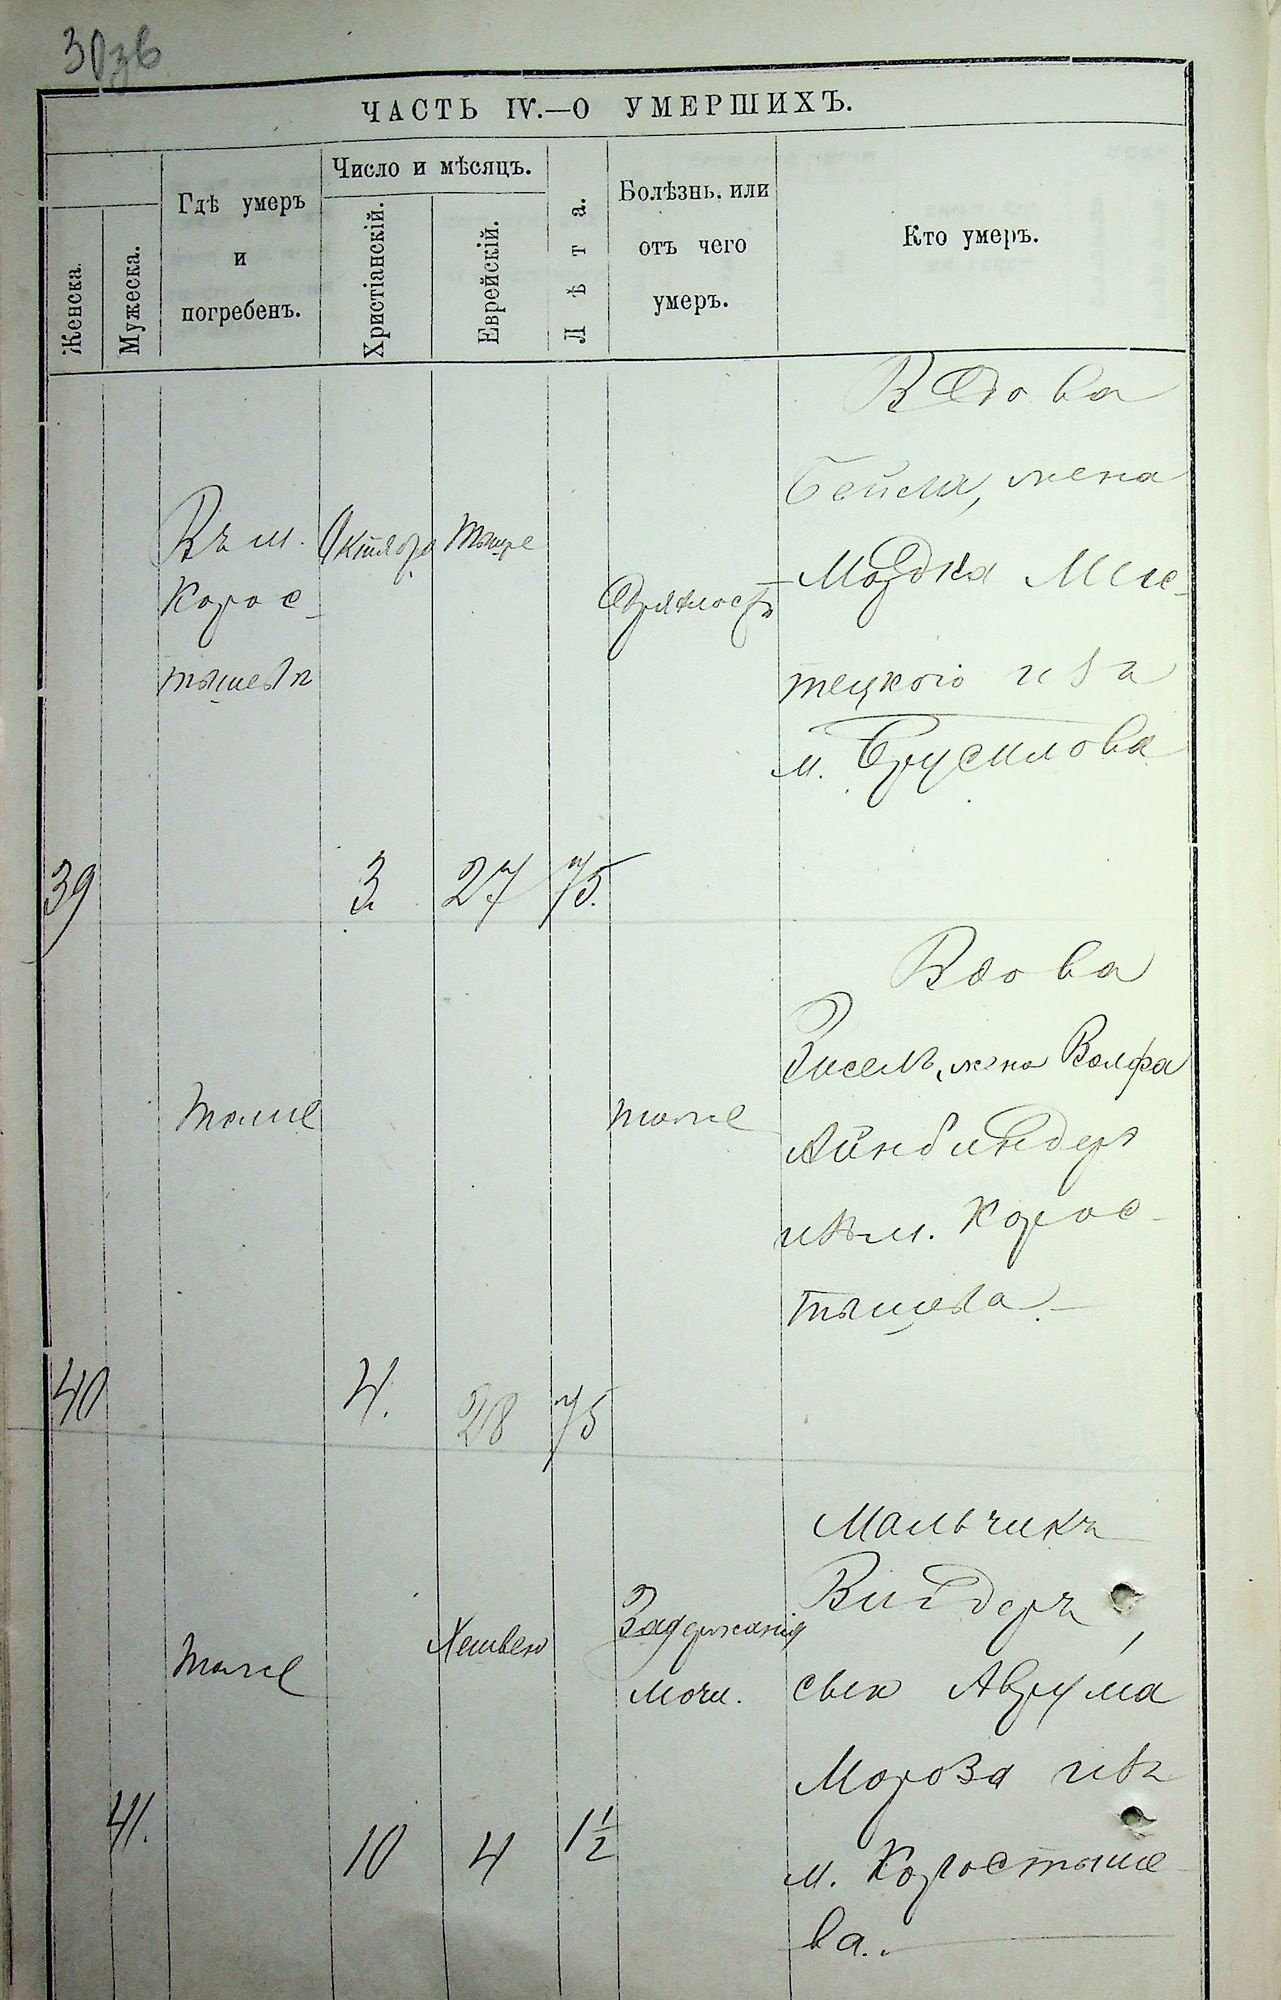 30зв
ЧАСТЬ IV.—О УМЕРШИХЪ.
Женска.
Мужеска.
Гдѣ умеръ
и
погребенъ.
Число и мѣсяцъ.
Христіанскій.
Еврейскій.
Лѣта.
Болѣзнь. или
отъ чего
умеръ.
Кто умеръ.
39
Въ м.
Корос-
тышевѣ
Октября
3.
Тишре
27
75.
Дряхлость
Вдова
Бейла, жена
Мордка
тецкого изъ
м. Брусилова
40
тоже
4.
28
75
тоже
Вдова
Зисель, жена Волфа
Айнбиндеръ
изъ м. Корос-
тышева.
41.
тоже
10
Хешвен
4
1½
Задержанія
мочи.
Мальчикъ
сын Аврума
Мороза изъ
м. Коростыше-
ва.